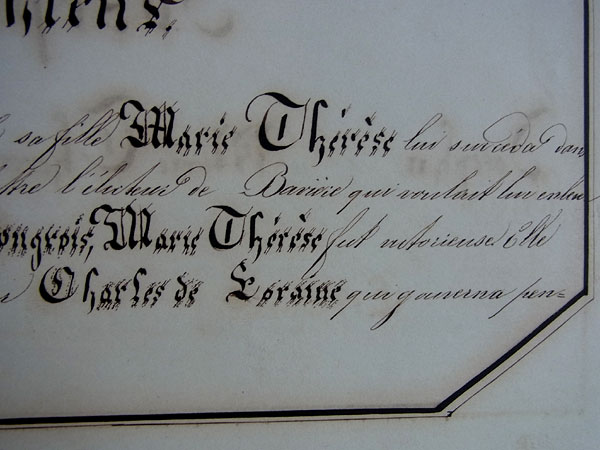 sa fille Marie Thérèse lui succéda dans
l'électeur de Bavière qui voulait lui enlev
ongrois, Marie Thérèse fut victorieuse Elle
Charles de Loraine qui gouverna pen=